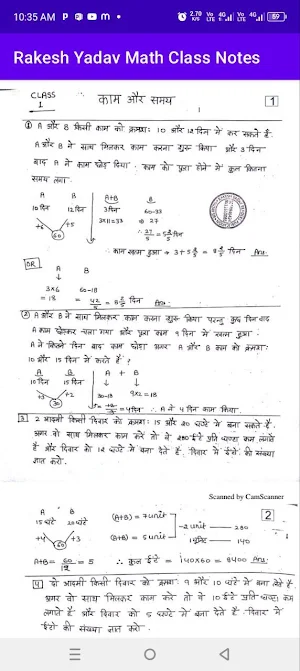 10:35 AM
2.70 KB/S Vo LTE 4G Vo LTE 4G 59
Rakesh Yadav Math Class Notes
CLASS 1
काम और समय
1
① A और B किसी काम को क्रमशः 10 और 12 दिन में कर सकते हैं
A और B ने साथ मिलकर काम करना शुरू किया और 3 दिन
बाद A ने काम छोड़ दिया। काम को पूरा होने में कुल कितना
समय लगा
A B A+B B
10 दिन 12 दिन 3 दिन 60-33
+6 +5 3×11=33 ⇒ 27
60
∴ काम खत्म हुआ → 3+5
दिन Ans:
OR
A B
3×6 60-18
= 18 = 42/5 = 8 2/5 दिन Ans:
② A और B ने साथ मिलकर काम करना शुरू किया परन्तु कुछ दिन बाद
A काम छोड़कर चला गया और पूरा काम 9 दिन में खत्म हुआ।
A ने कितने दिन बाद काम छोड़ा अगर A और B काम को क्रमशः
10 और 15 दिन में करते हैं ?
A B A + B
10 दिन 15 दिन
+3 +2 30-18 9×2=18
30
= 4 दिन ∴ A ने 4 दिन काम किया.
3 2 आदमी किसी दिवार को क्रमशः 15 और 20 घण्टे में बना सकते हैं.
अगर वो साथ मिलकर काम करें तो वे 280 ईंटें प्रति घण्टा कम लगाते
हैं और दिवार को 12 घण्टे में बना देते हैं. दिवार में ईंटों की संख्या
ज्ञात करो.
Scanned by CamScanner
2
A B
15 घंटे 20 घंटे (A+B) = 7 unit
-2 unit — 280
+4 +3 (A+B) = 5 unit
1 यूनिट — 140
60
A+B = 60/12 = 5 ∴ कुल ईंटें = 140×60 = 8400 Ans:
4 दो आदमी किसी दिवार को क्रमशः 9 और 10 घंटे में बना लेते हैं
अगर वो साथ मिलकर काम करें तो वे 10 ईंटें प्रति घंटा कम
लगाते हैं और दिवार को 5 घण्टे में बना देते हैं. दिवार में
ईंटों की संख्या ज्ञात करो.